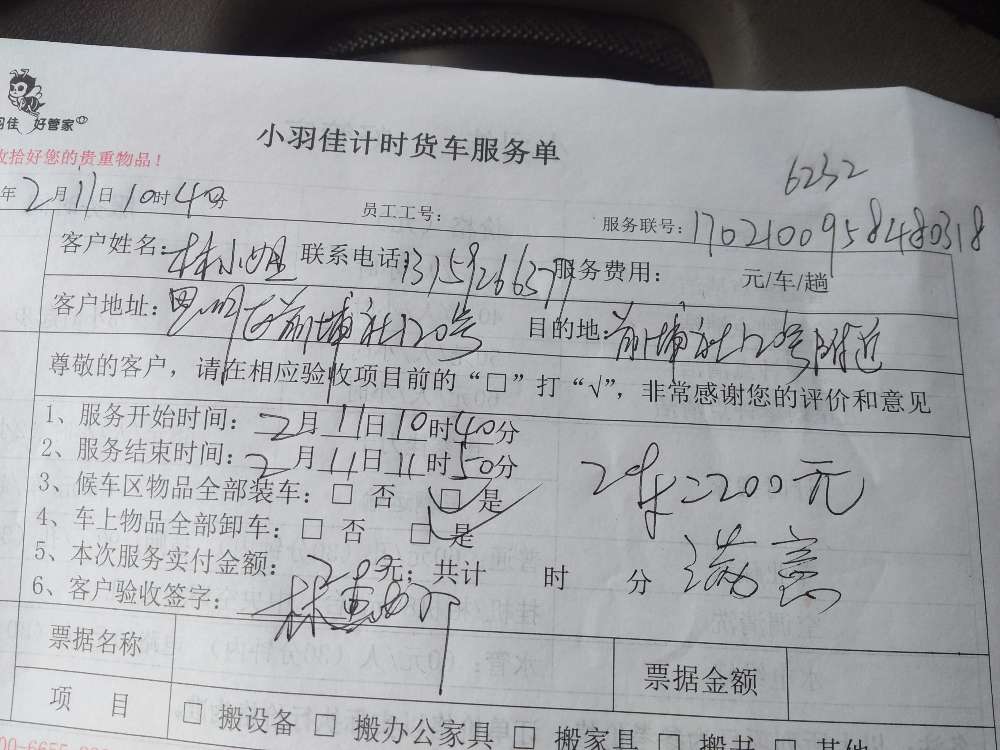 羽佳 好管家
收拾好您的贵重物品！
小羽佳计时货车服务单
6232
年2月11日10时40分 员工工号： 服务联号：1702100958480318
客户姓名：林小姐 联系电话：13159266377 服务费用： 元/车/趟
客户地址：思明区前埔社120号 目的地：前埔社120号附近
尊敬的客户，请在相应验收项目前的“□”打“√”，非常感谢您的评价和意见
1、服务开始时间：2月11日10时40分
2、服务结束时间：2月11日11时50分
3、候车区物品全部装车：□ 否 □ 是
2时=200元
4、车上物品全部卸车：□ 否 □ 是
5、本次服务实付金额：200元；共计 时 分
满意
6、客户验收签字：林
票据名称 票据金额
项 目 □ 搬设备 □ 搬办公家具 □ 搬家具 □ 搬书 □ 其他